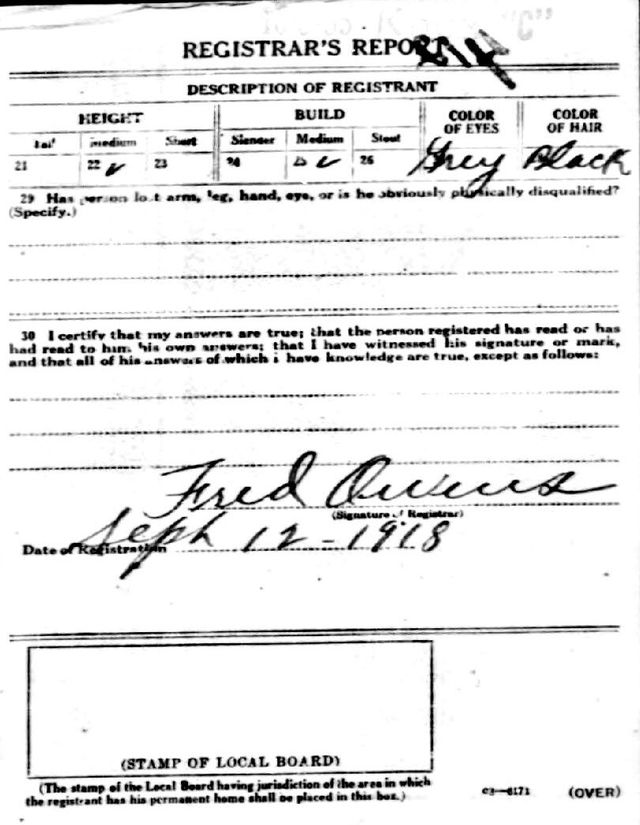 REGISTRAR'S REPORT
DESCRIPTION OF REGISTRANT
HEIGHT BUILD COLOR OF EYES COLOR OF HAIR
Tall Medium Short Slender Medium Stout
21 22 ✓ 23 24 25 ✓ 26 Grey Black
29 Has person lost arm, leg, hand, eye, or is he obviously physically disqualified?
(Specify.)
30 I certify that my answers are true; that the person registered has read or has
had read to him his own answers; that I have witnessed his signature or mark,
and that all of his answers of which I have knowledge are true, except as follows:
Fred Owens
(Signature of Registrar)
Date of Registration Sept 12-1918
(STAMP OF LOCAL BOARD)
(The stamp of the Local Board having jurisdiction of the area in which
the registrant has his permanent home shall be placed in this box.)
03—6171 (OVER)